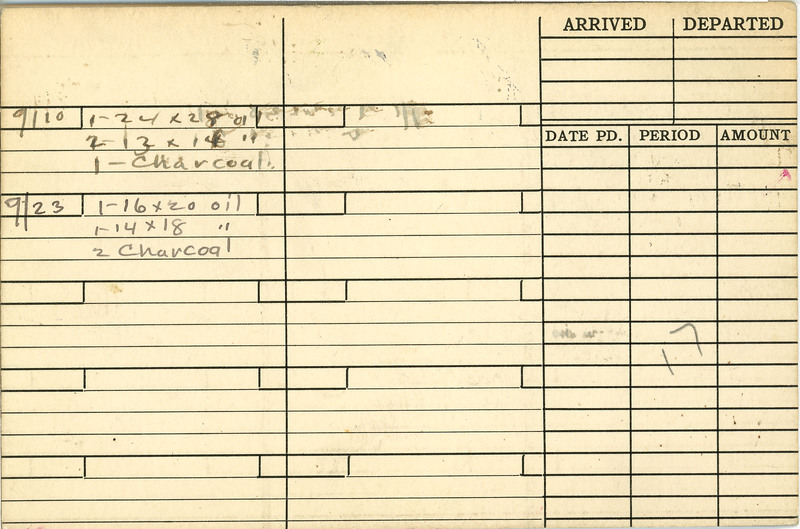 ARRIVED DEPARTED
9/10 1-24 x 28 oil
2-12 x 16 "
1-Charcoal.
DATE PD. PERIOD AMOUNT
9/23 1-16x20 oil
1-14x18 "
2 Charcoal
17